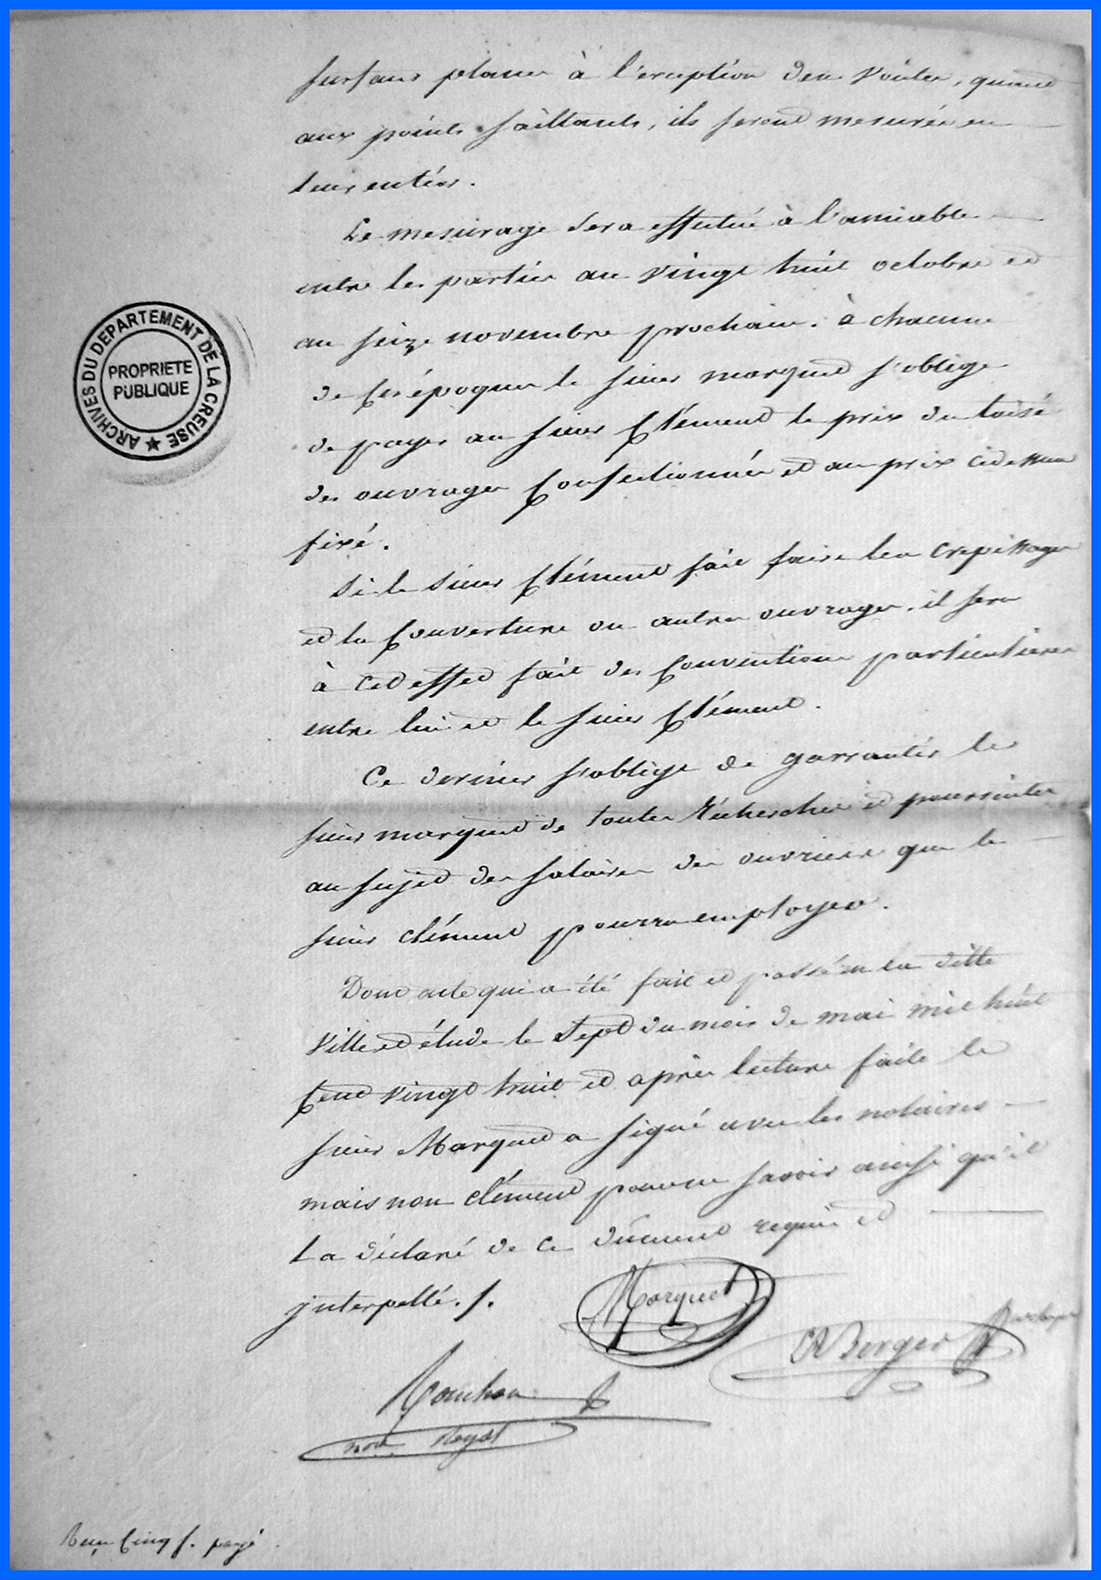 surfaces planes à l'exception des voutes, quand
aux points saillants, ils seront mesurés en
leur entier.
Le mesurage sera effectué à l'amiable
entre les parties au vingt huit octobre et
au seize novembre prochain. à chacune
de ces époques le sieur marquet s'oblige
de payer au sieur Clément le prix du toisé
des ouvrages Confectionnés et au prix cidessus
fixé.
Si le sieur Clément fait faire les crepissages
et la Couverture ou autres ouvrages, il sera
à cet effet fait des Conventions particulieres
entre lui et le sieur Clément.
Ce dernier s'oblige de garrantir le
sieur marquet de toutes recherches et poursuites
au sujet des salaires des ouvriers que le
sieur clément pourra employer.
Dont acte qui a été fait et passé en la ditte
Ville et étude le sept du mois de mai mil huit
Cent vingt huit et après lecture faite le
sieur Marquet a signé avec les notaires
mais non clément pour ne savoir ainsi qu'il
la déclaré de ce duement requis et
interpellé. /.
Marquet
Berger
not. Royal
Reçu Cinq f. payé
ARCHIVES DU DEPARTEMENT DE LA CREUSE
PROPRIETE
PUBLIQUE